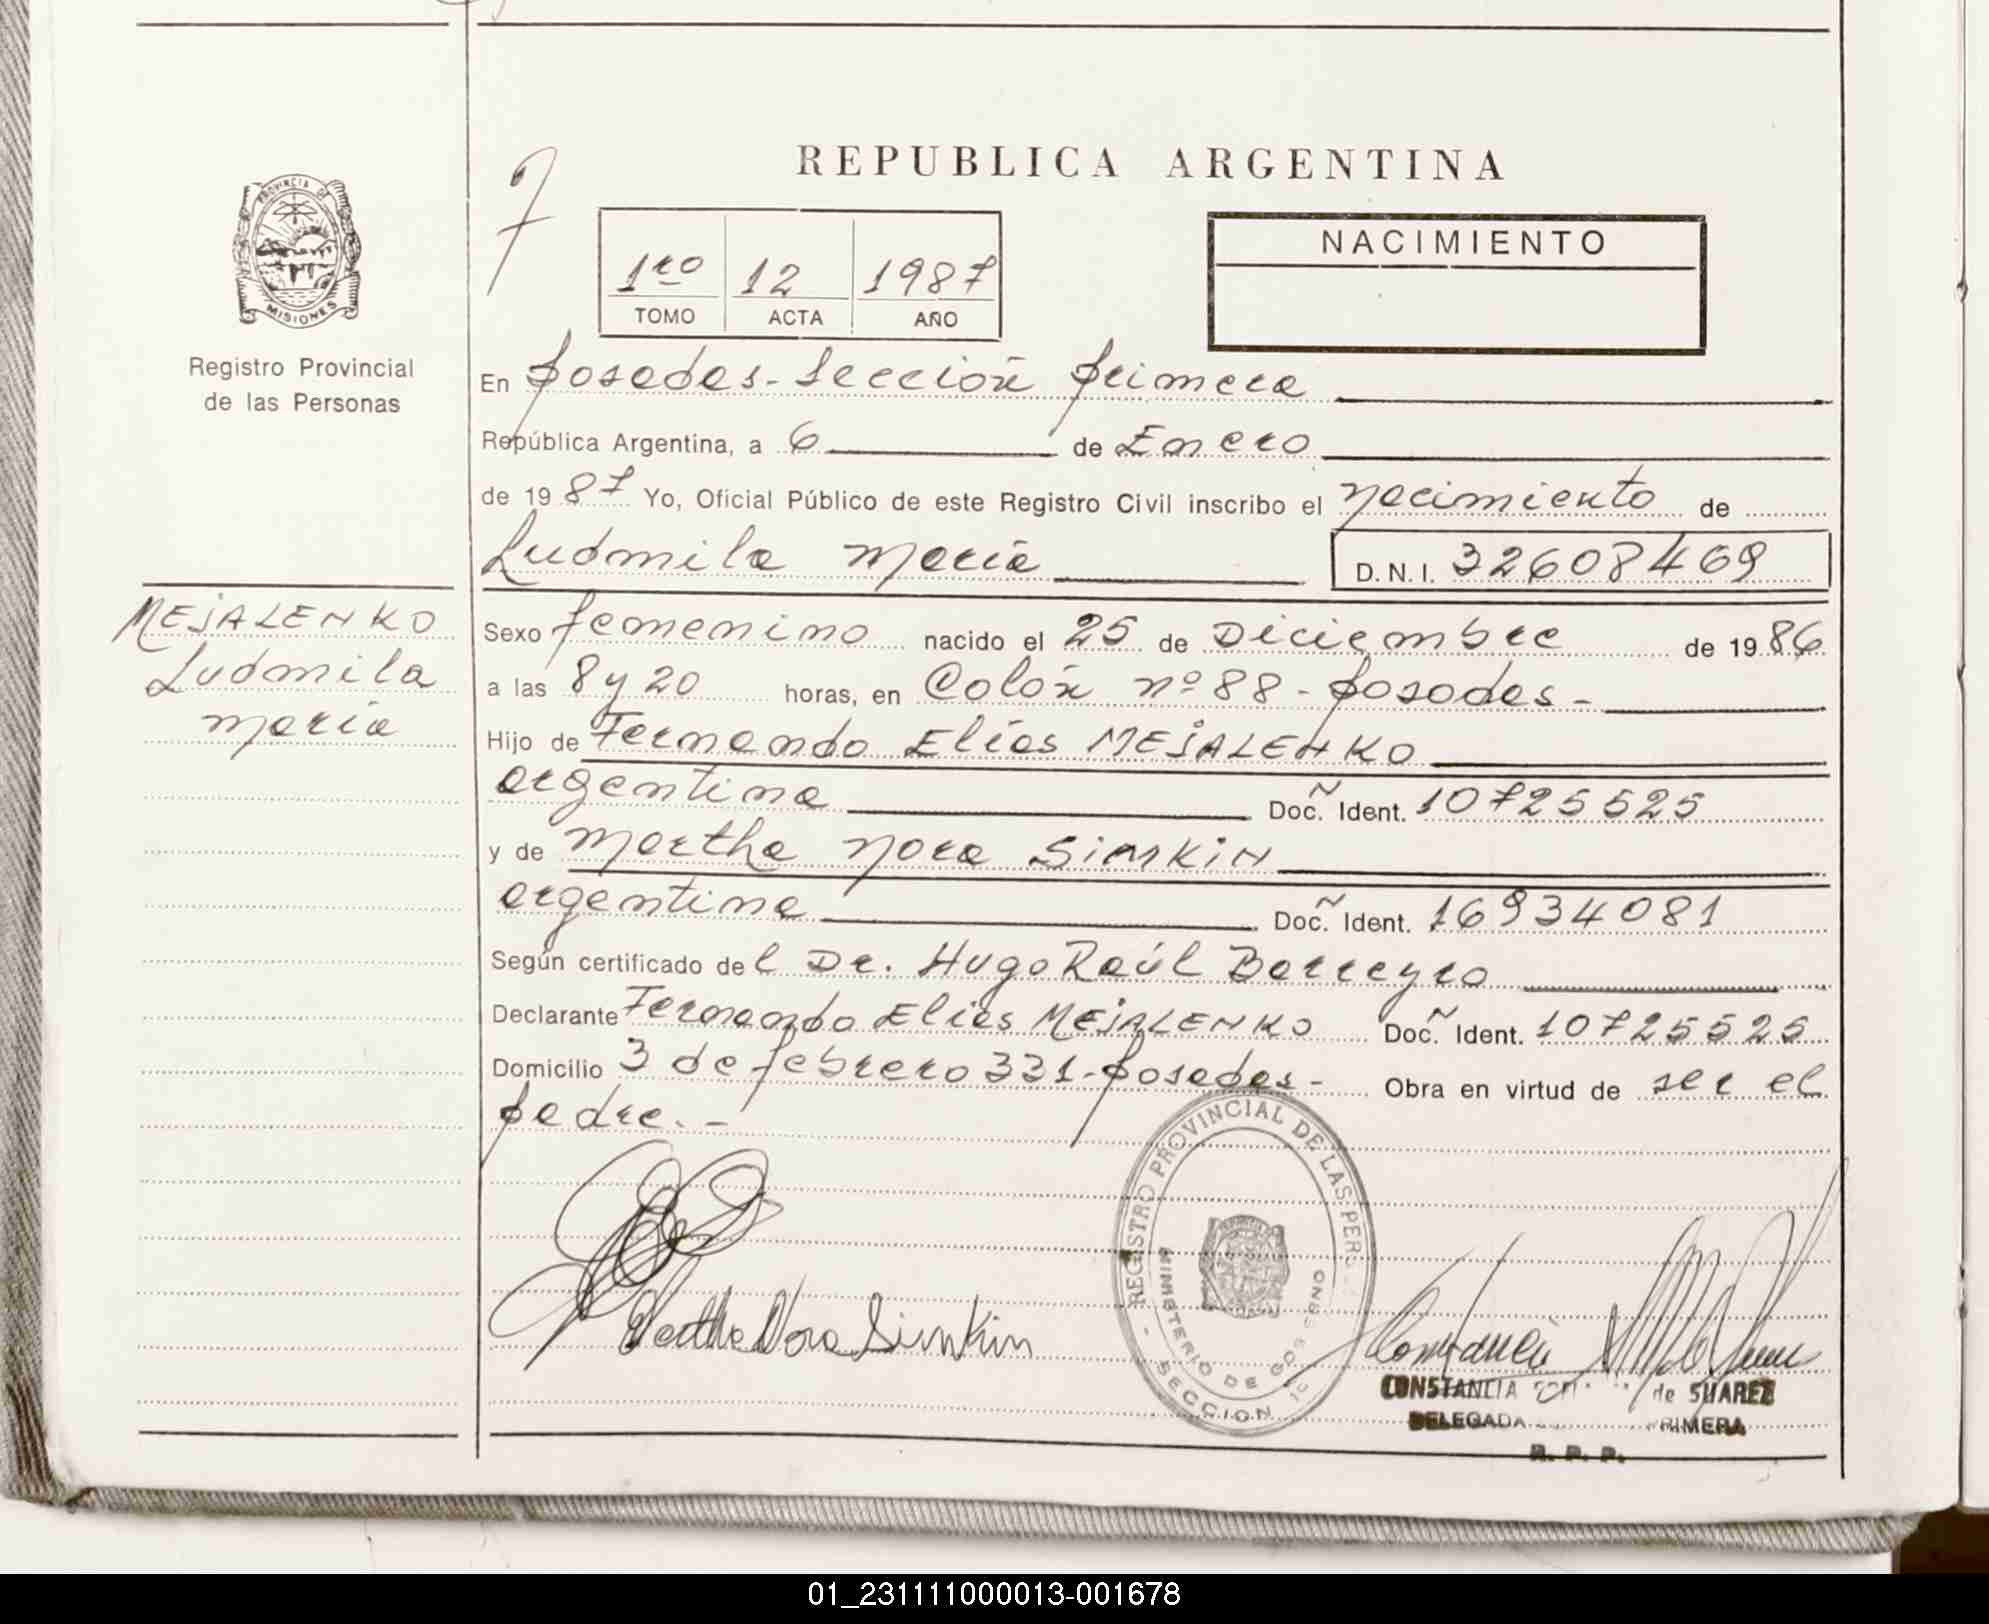 REPUBLICA ARGENTINA
PROVINCIA DE MISIONES
Registro Provincial
de las Personas
1ro 12 1987
TOMO ACTA AÑO
NACIMIENTO
En Posadas - Sección Primera
República Argentina, a 6 de Enero
de 1987 Yo, Oficial Público de este Registro Civil inscribo el Nacimiento de
Ludmila María D.N.I. 32608469
MEJALENKO
Ludmila
María
Sexo femenino nacido el 25 de Diciembre de 1986
a las 8 y 20 horas, en Colón nº 88 - Posadas -
Hijo de Fernando Elías MEJALENKO
argentina Doc. Ident. 10725525
y de Martha Nora SIMKIN
argentina Doc. Ident. 16934081
Según certificado del Dr. Hugo Raúl Barreyro
Declarante Fernando Elías MEJALENKO Doc. Ident. 10725525
Domicilio 3 de febrero 331 - Posadas - Obra en virtud de ser el
padre. -
REGISTRO PROVINCIAL DE LAS PERS
MINISTERIO DE GOBIERNO
SECCION 1
Martha Nora Simkin
CONSTANCIA de SUAREZ
DELEGADA PRIMERA
R. P. P.
01_231111000013-001678